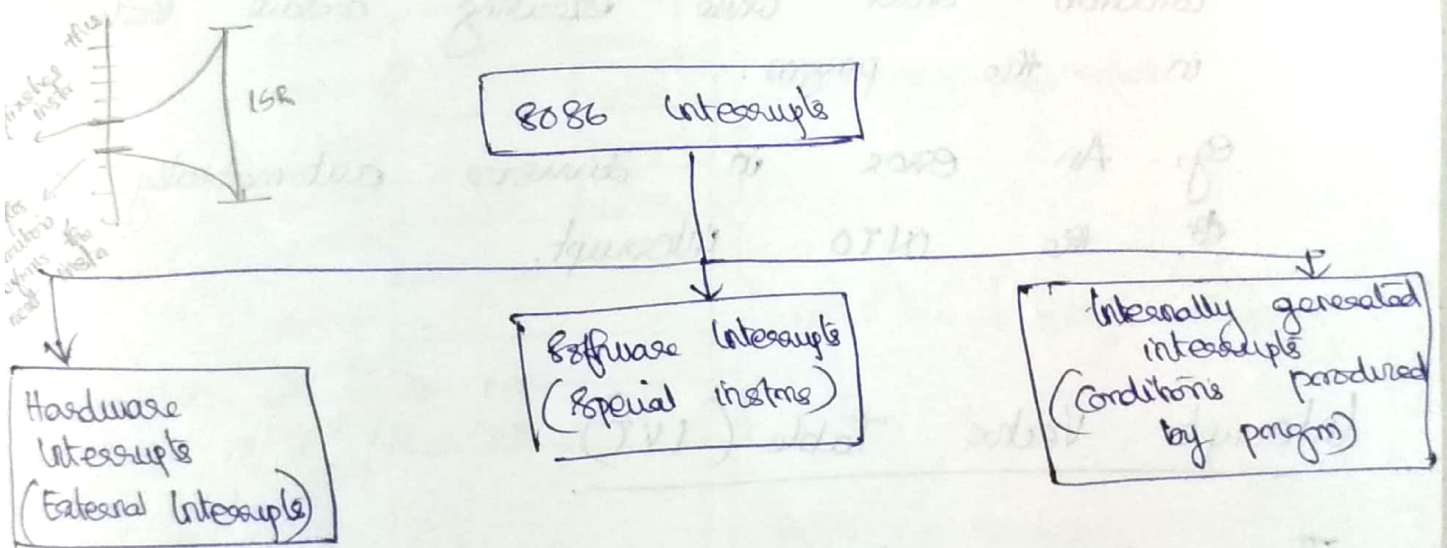 ISR
8086 Interrupts
Hardware
Interrupts
(External Interrupts)
Software Interrupts
(Special instrns)
Internally generated
interrupts
(Conditions produced
by prngm)